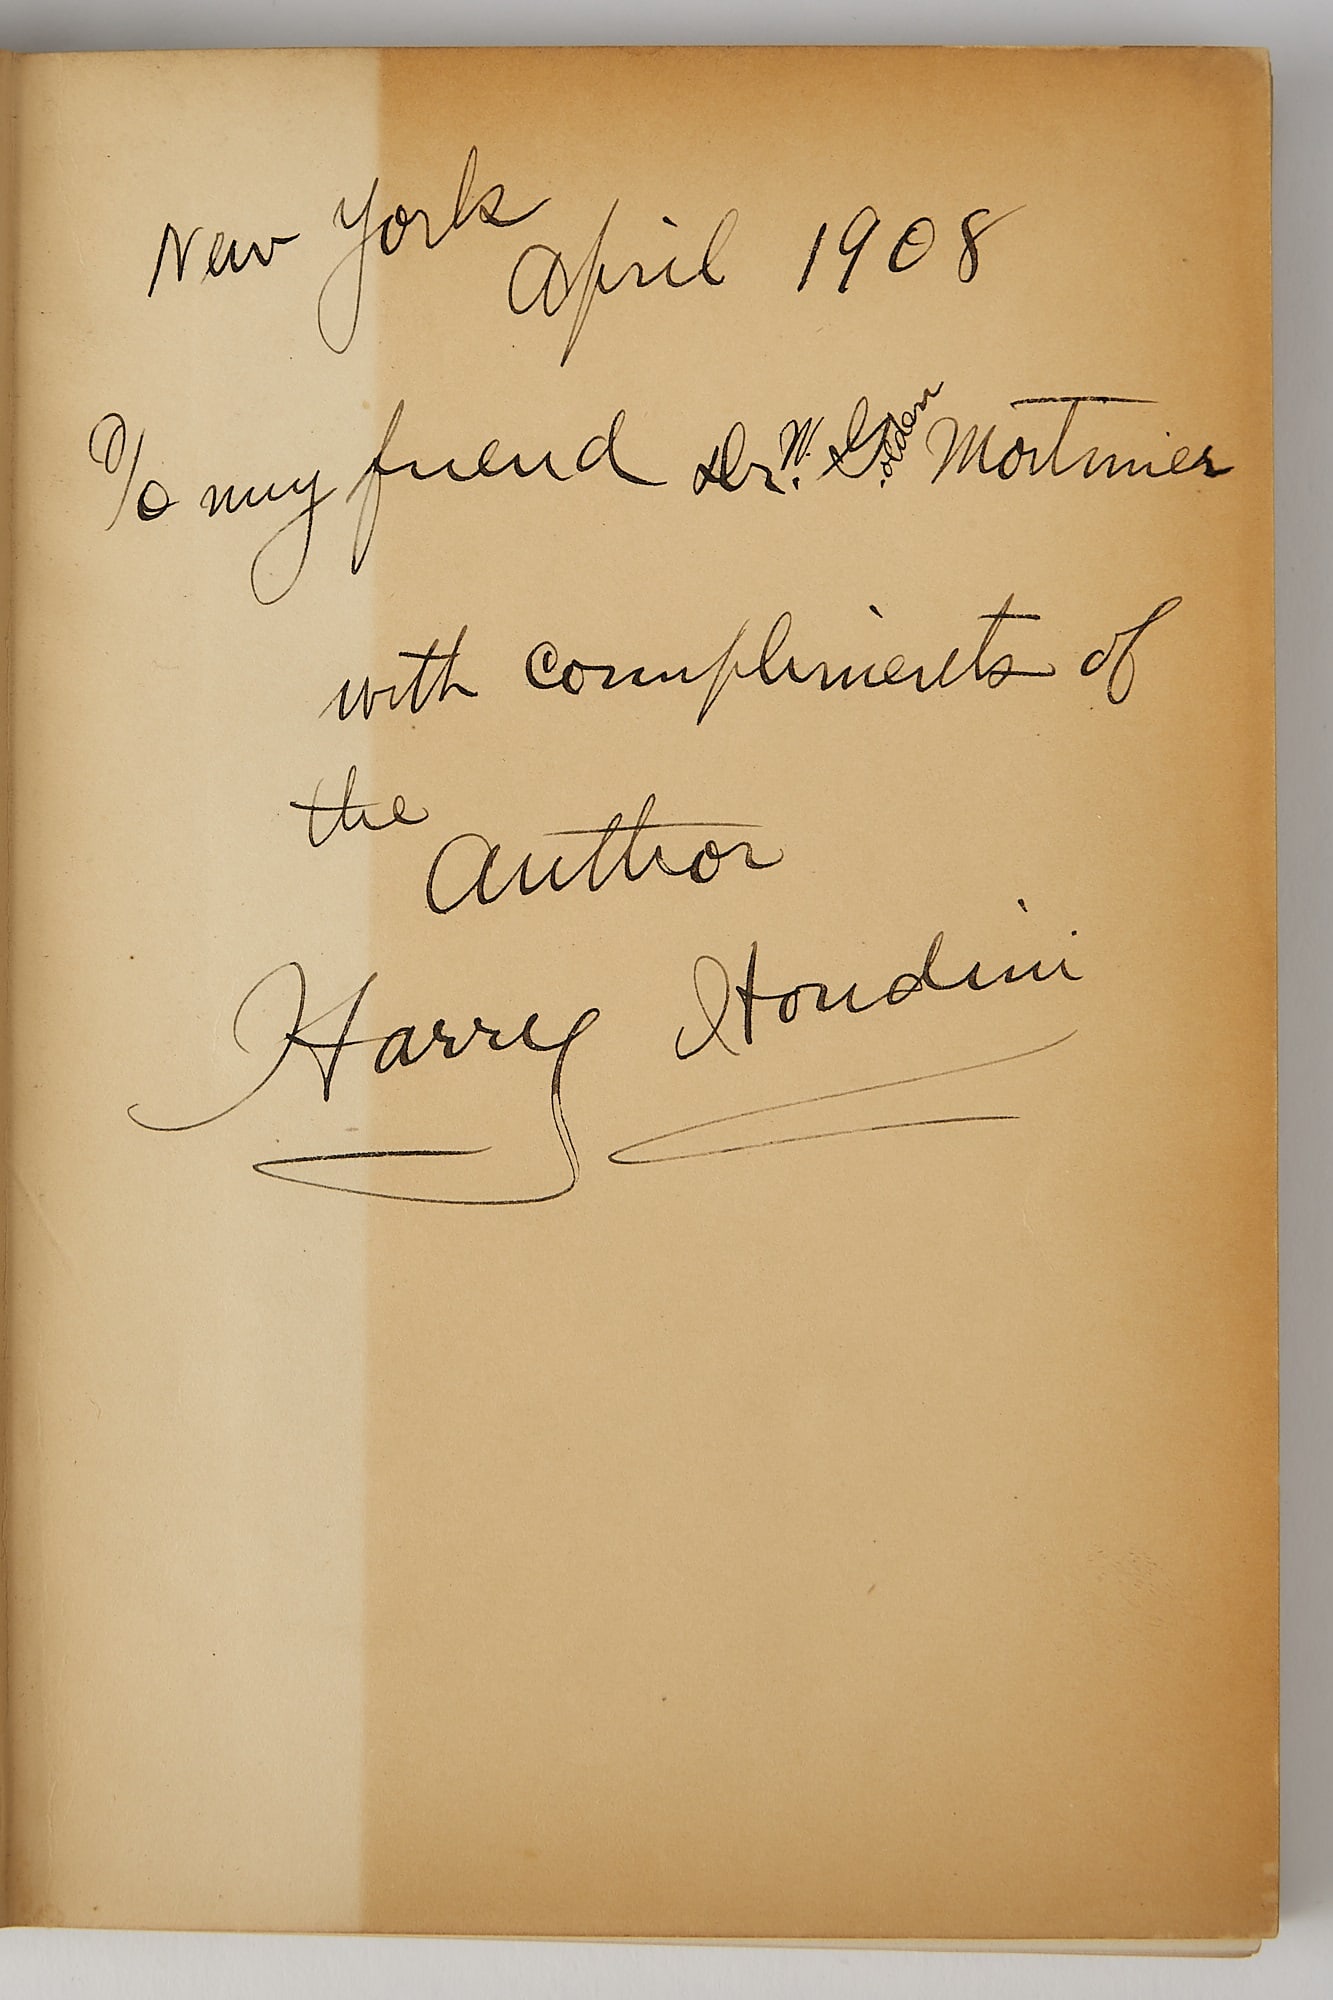 New York
April 1908
To my friend Dr. W. Golden Mortimer
with compliments of
the
Author
Harry Houdini